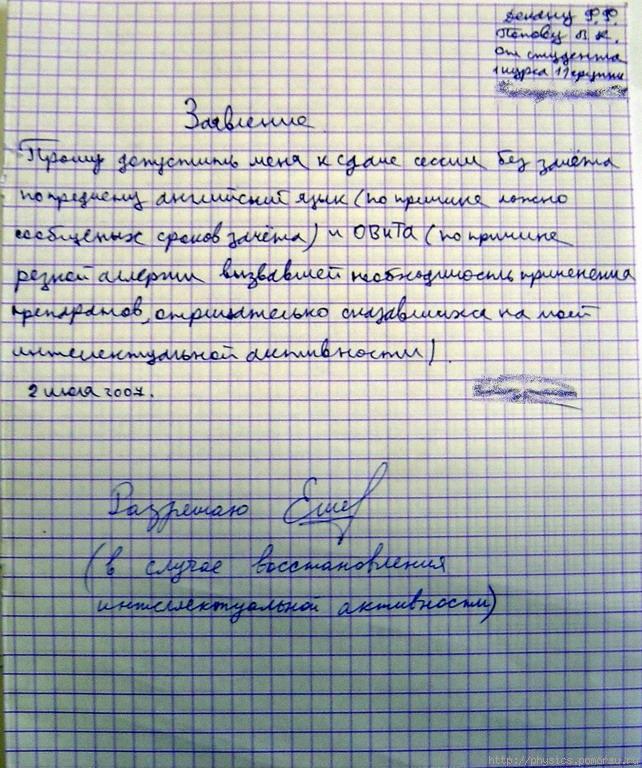 Декану Ф.Ф.
Попову В.К.
От студента
1 курса 11 группы
Заявление
Прошу допустить меня к сдаче сессии без зачёта
по предмету английский язык (по причине ложно
сообщеных сроков зачёта) и ОВиТА (по причине
резкой аллергии вызвавшей необходимость применения
препаратов, отрицательно сказавшихся на моей
интелектуальной активности).
2 июля 2007.
Разрешаю
(в случае восстановления
интеллектуальной активности)
http://physics.pomorsu.ru